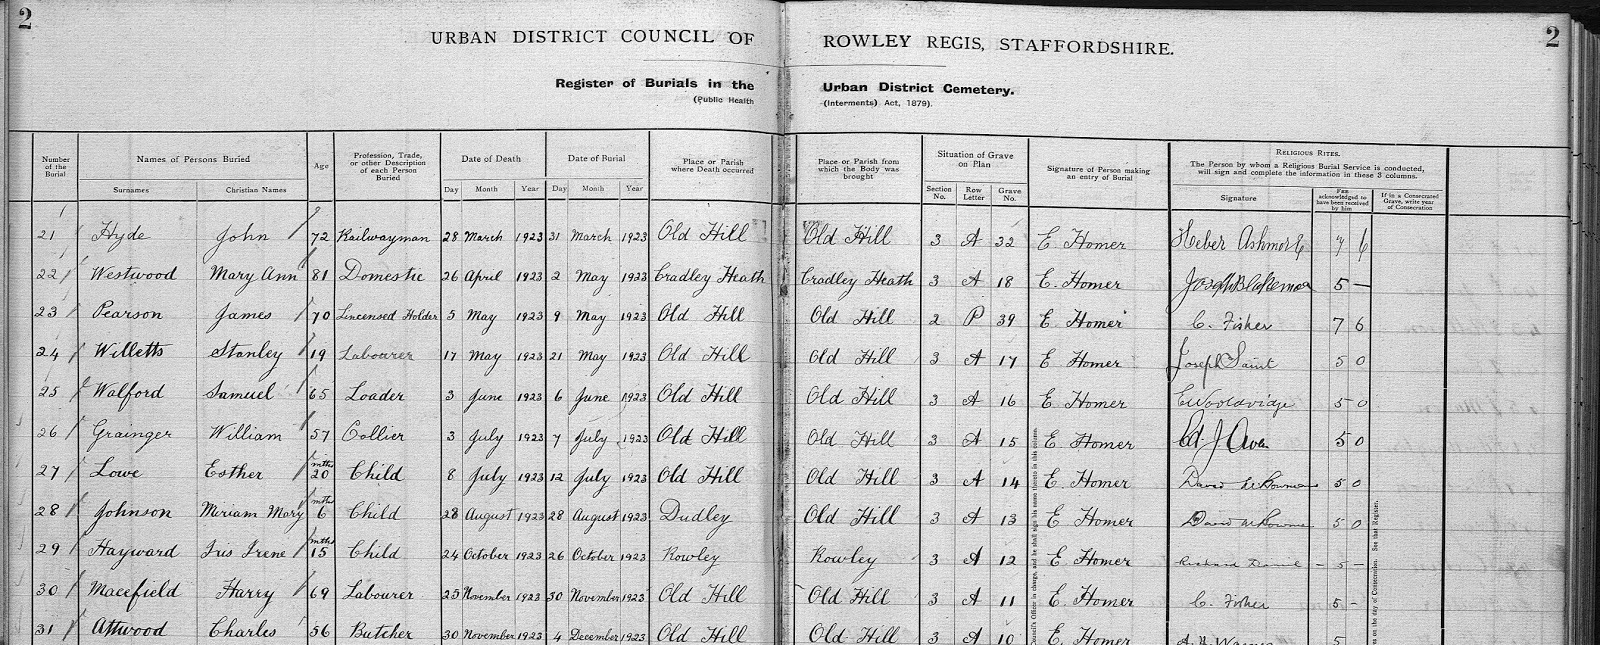 2 2
URBAN DISTRICT COUNCIL OF ROWLEY REGIS, STAFFORDSHIRE.
Register of Burials in the Urban District Cemetery.
(Public Health (Interments) Act, 1879).
Number of the Burial Names of Persons Buried Surnames Christian Names Age Profession, Trade, or other Description of each Person Buried Date of Death Day Month Year Date of Burial Day Month Year Place or Parish where Death occurred Place or Parish from which the Body was brought Situation of Grave on Plan Section No. Row Letter Grave No. Signature of Person making an entry of Burial RELIGIOUS RITES. The Person by whom a Religious Burial Service is conducted, will sign and complete the information in these 3 columns. Signature Fee acknowledged to have been received by him If in a Consecrated Grave, write year of Consecration
21 Hyde John 72 Railwayman 28 March 1923 31 March 1923 Old Hill Old Hill 3 A 32 E. Homer Heber Ashmore 7 6
22 Westwood Mary Ann 81 Domestic 26 April 1923 2 May 1923 Cradley Heath Cradley Heath 3 A 18 E. Homer Joseph Blakemore 5 –
23 Pearson James 70 Lincensed Holder 5 May 1923 9 May 1923 Old Hill Old Hill 2 P 39 E Homer C. Fisher 7 6
24 Willetts Stanley 19 Labourer 17 May 1923 21 May 1923 Old Hill Old Hill 3 A 17 E Homer Joseph Saint 5 0
25 Walford Samuel 65 Loader 3 June 1923 6 June 1923 Old Hill Old Hill 3 A 16 E Homer E Wooldridge 5 0
26 Grainger William 57 Collier 3 July 1923 7 July 1923 Old Hill Old Hill 3 A 15 E Homer J 5 0
27 Lowe Esther mths 20 Child 8 July 1923 12 July 1923 Old Hill Old Hill 3 A 14 E Homer David 5 0
28 Johnson Miriam Mary mths 6 Child 23 August 1923 28 August 1923 Dudley Old Hill 3 A 13 E Homer David 5 0
29 Hayward Iris Irene mths 15 Child 24 October 1923 26 October 1923 Rowley Rowley 3 A 12 E. Homer Richard – 5 –
30 Macefield Harry 69 Labourer 25 November 1923 30 November 1923 Old Hill Old Hill 3 A 11 E. Homer C. Fisher 5 –
31 Attwood Charles 56 Butcher 30 November 1923 4 December 1923 Old Hill Old Hill 3 A 10 E. Homer 5
Council's Officer in charge, and he shall sign his name thereto in this column.
on the day of Consecration. See that Register.